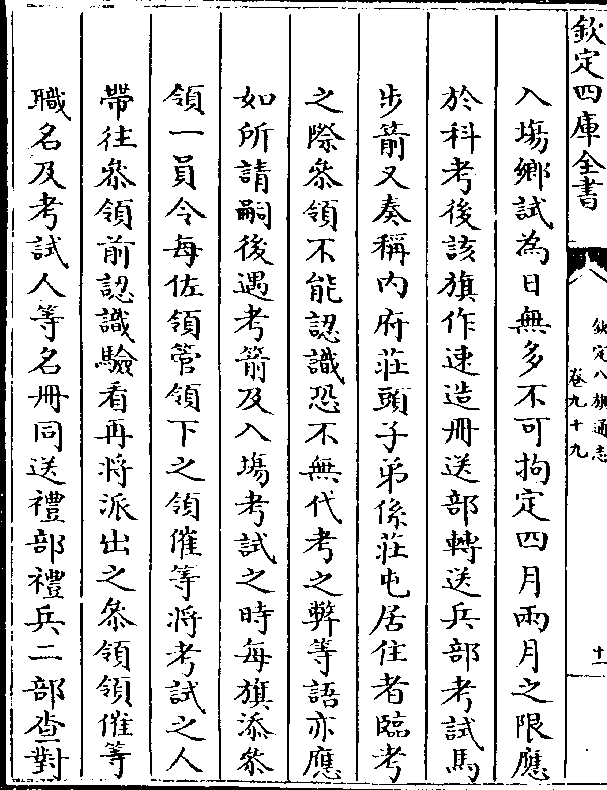 欽定四庫全書
欽定八旗通志
卷九十九
十一
入塲鄉試為日無多不可拘定四月兩月之限應
於科考後該旗作速造冊送部轉送兵部考試馬
步箭又奏稱内府莊頭子弟係莊屯居住者臨考
之際叅領不能認識恐不無代考之弊等語亦應
如所請嗣後遇考箭及入塲考試之時每旗添叅
領一員令每佐領管領下之領催等將考試之人
帶往叅領前認識驗看再將派出之叅領領催等
職名及考試人等名冊同送禮部禮兵二部查對